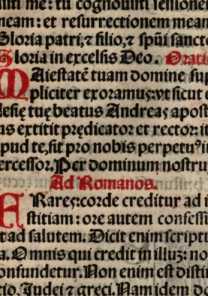 me: tu cognouiti sessionem
meam: et resurrectionem meam
Gloria patri, & filio, & spũi sancto
Gloria in excelsis Deo. Oratio
Maiestatē tuam domine sup
pliciter exoramus: vt sicut e
clesię tuę beatus Andreas apost
us extitit prędicator et rector: it
pud te, sit pro nobis perpetu⁹ in
ercessor. Per dominum nostru
Ad Romanos.
FRares: corde creditur ad i
stitiam: ore autem confessi
t ad salutem. Dicit enim scriptu
a. Omnis qui credit in illuz: no
onfundetur. Non enim est disti
tio. Judei & greci. Nam idem do